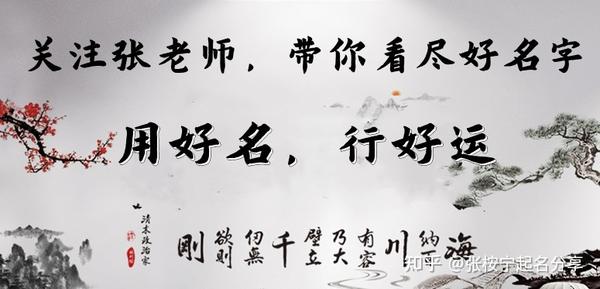 关注张老师，带你看尽好名字
用好名，行好运
海纳百川有容乃大壁立千仞無欲则剛
清末政治家
知乎 @张桉宇起名分享